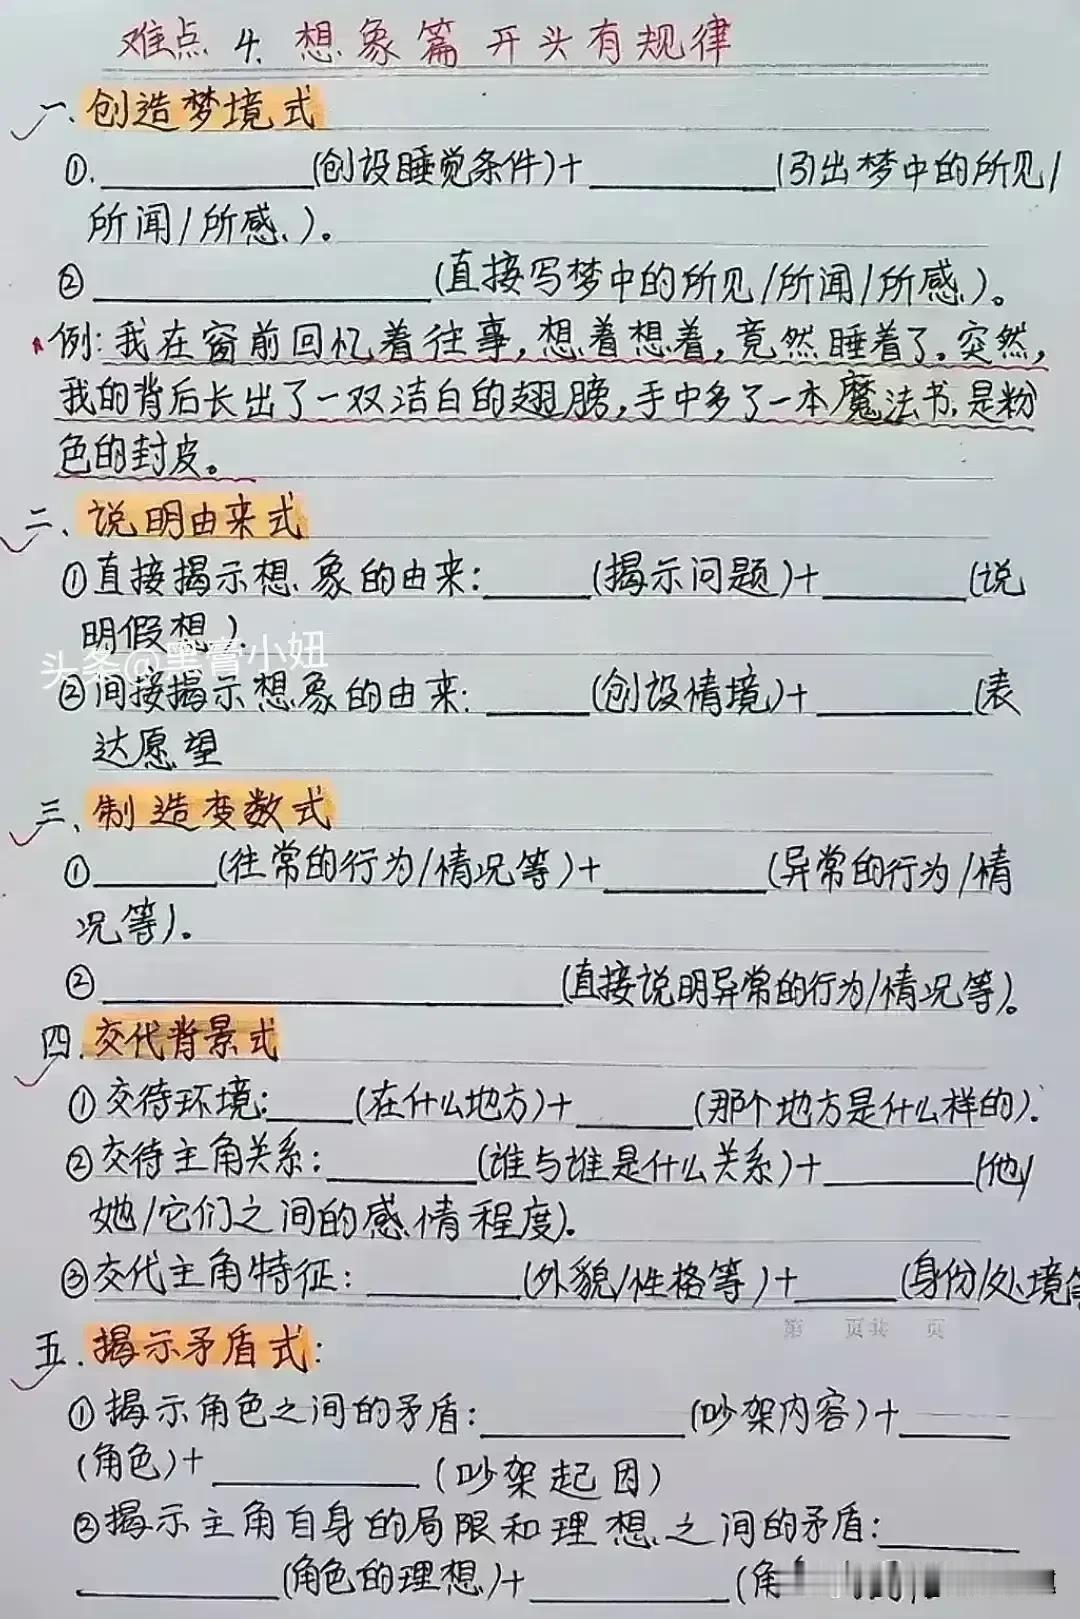 难点4.想象篇开头有规律
一、创造梦境式
①.____________(创设睡觉条件)+____________(引出梦中的所见/
所闻/所感、)。
②____________________(直接写梦中的所见/所闻/所感、)。
例:我在窗前回忆着往事,想着想着,竟然睡着了。突然,
我的背后长出了一双洁白的翅膀,手中多了一本魔法书,是粉
色的封皮。
二、说明由来式
①直接揭示想象的由来:______(揭示问题)+________(说
明假想).
头条@黑膏小妞
②间接揭示想象的由来:______(创设情境)+________(表
达愿望
三、制造变数式
①______(往常的行为/情况等)+________(异常的行为/情
况等)。
②____________________(直接说明异常的行为/情况等)。
四.交代背景式
①交待环境:____(在什么地方)+______(那个地方是什么样的).
②交待主角关系:________(谁与谁是什么关系)+________(他/
她/它们之间的感情程度)。
③交代主角特征:________(外貌/性格等)+______(身份/处境等
第 页共 页
五.揭示矛盾式:
①揭示角色之间的矛盾:__________(吵架内容)+______
(角色)+__________(吵架起因)
②揭示主角自身的局限和理想之间的矛盾:________
__________(角色的理想)+________(角